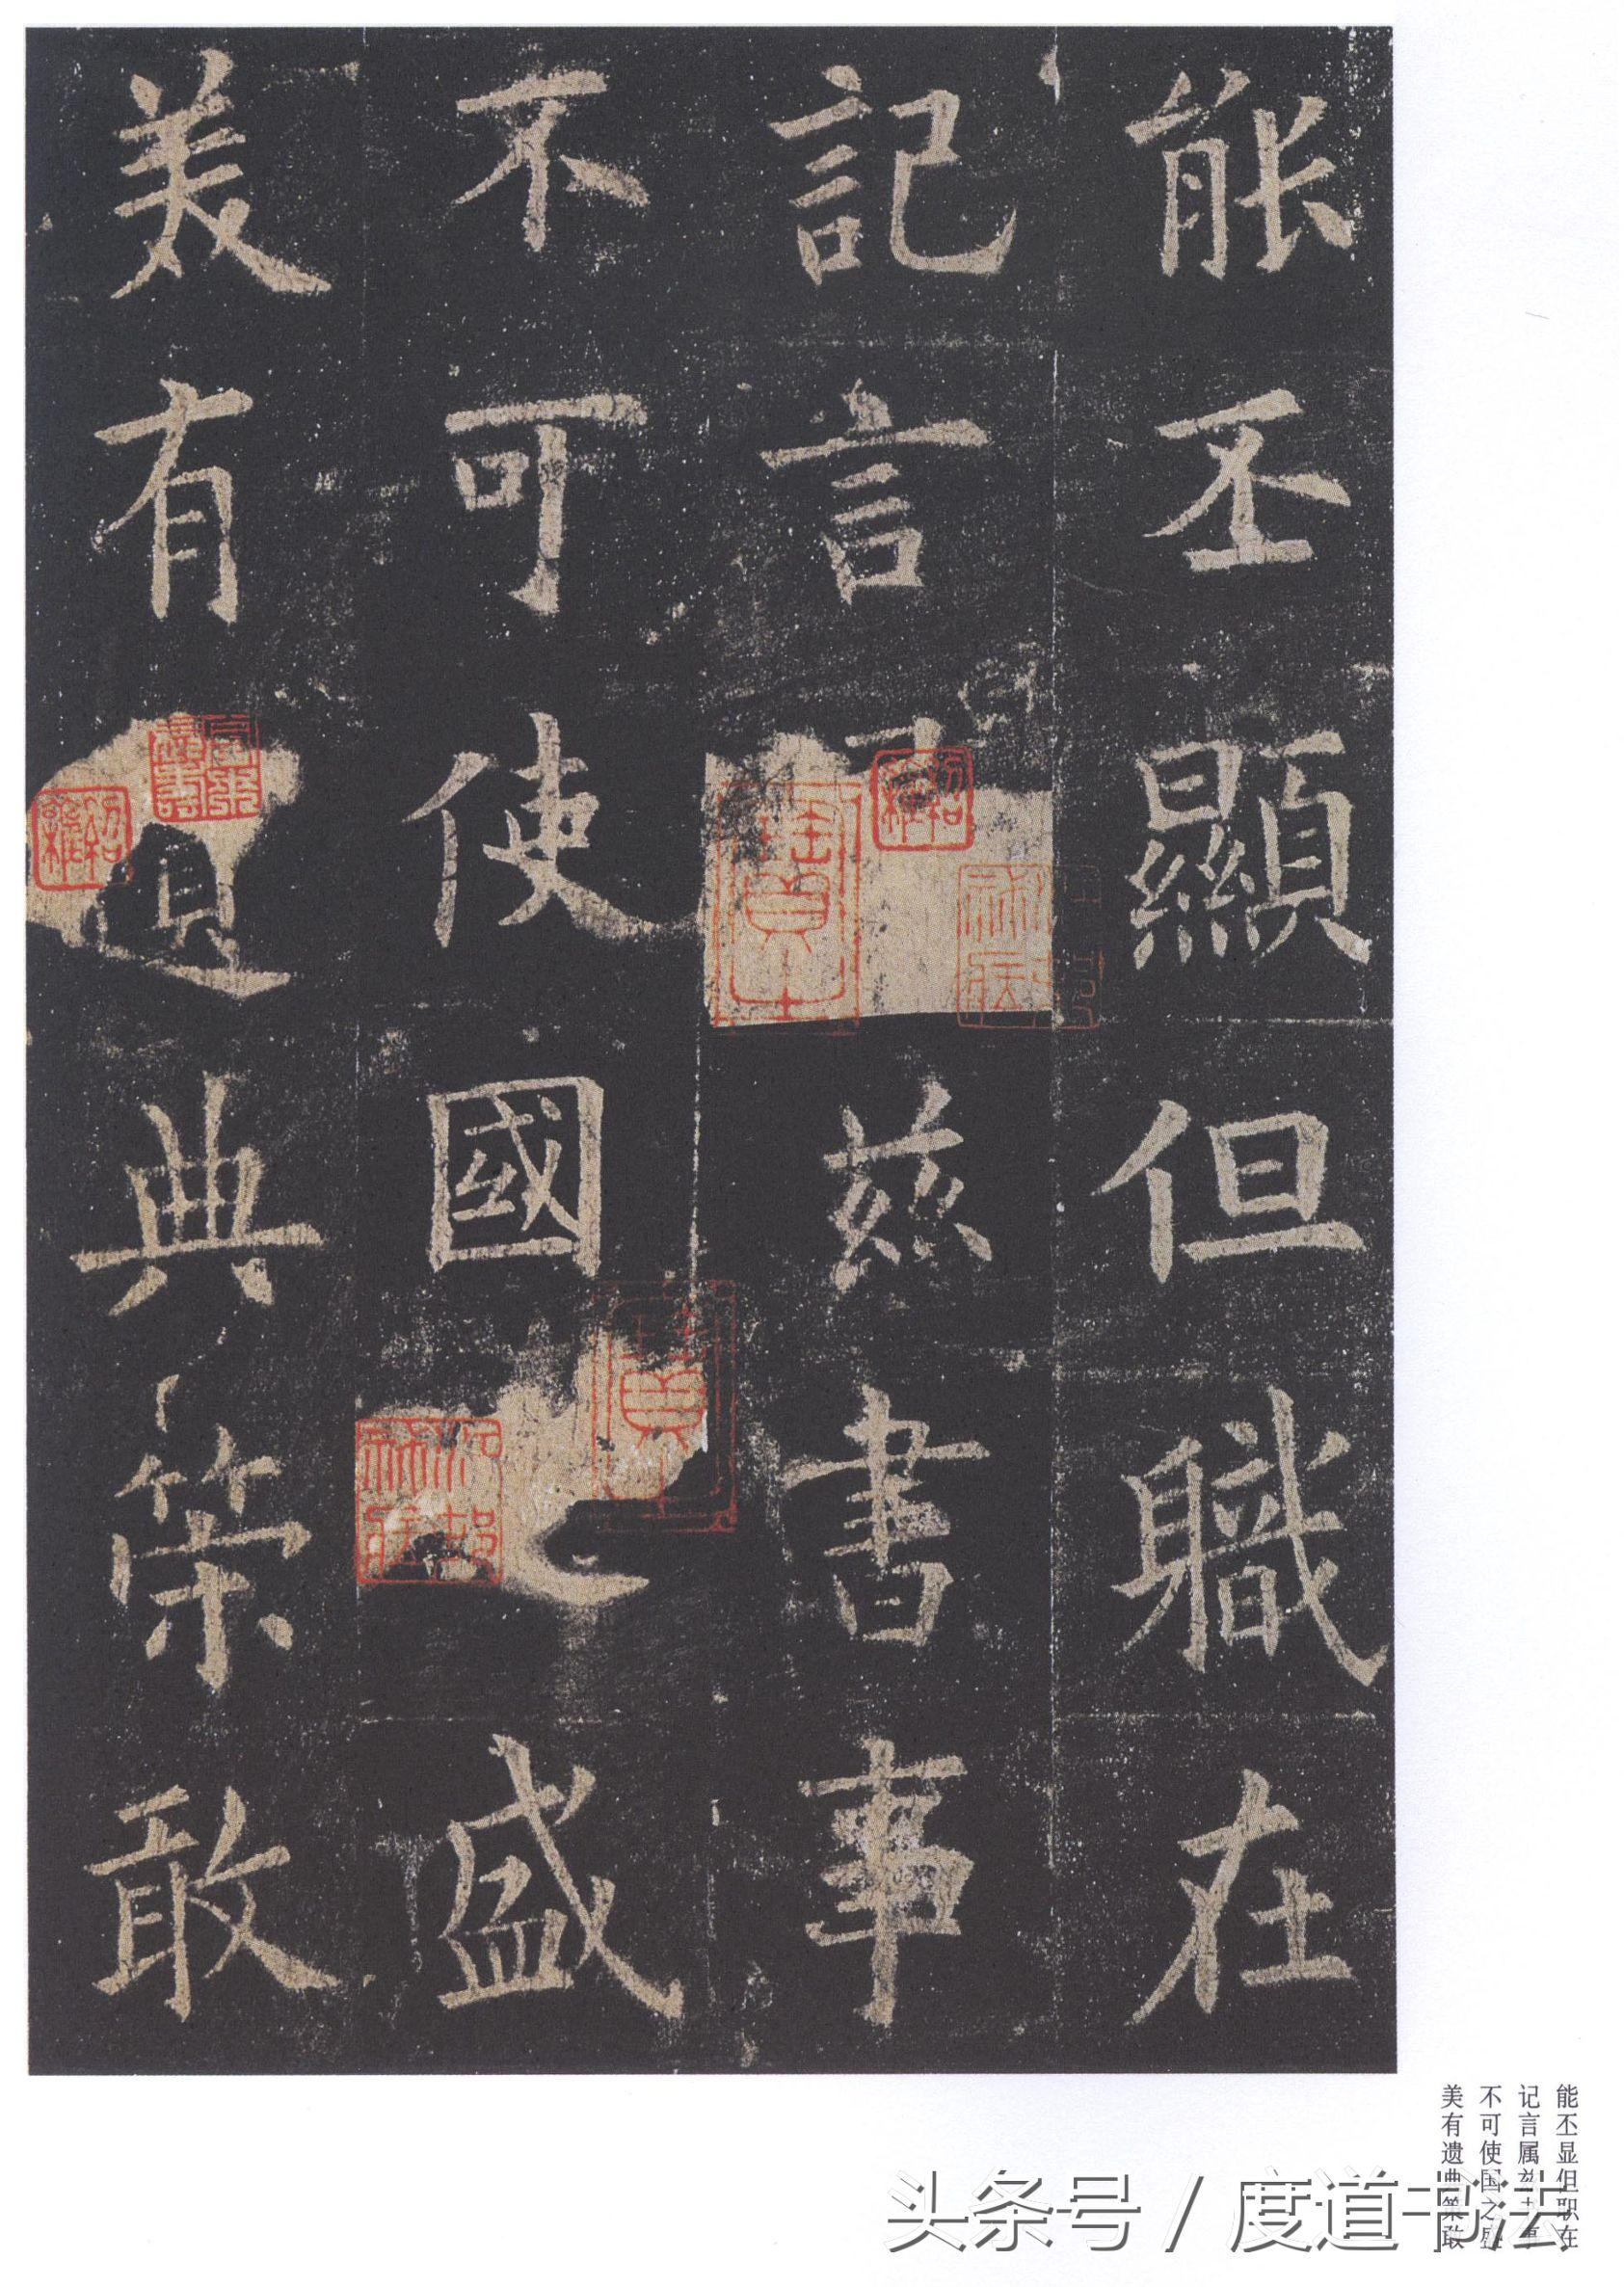 能丕顯但職在
記言兹書事
不可使國之盛
美有遺典策敢
能丕显但职在
记言属兹书事
不可使国之盛
美有遗典策敢
头条号 / 度道书法